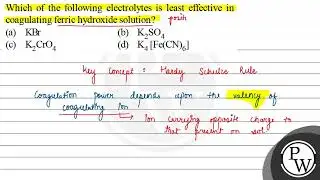 Which of the following electrolytes is least effective in
coagulating ferric hydroxide solution?
posi+h
(a) KBr (b) K₂SO₄
(c) K₂CrO₄ (d) K₄ [Fe(CN)₆]
Key Concept : Hardy Schulze Rule
Coagulation power depends upon the valency of
coagulating Ion
Ion carrying opposite charge to
that present on sol.
PW